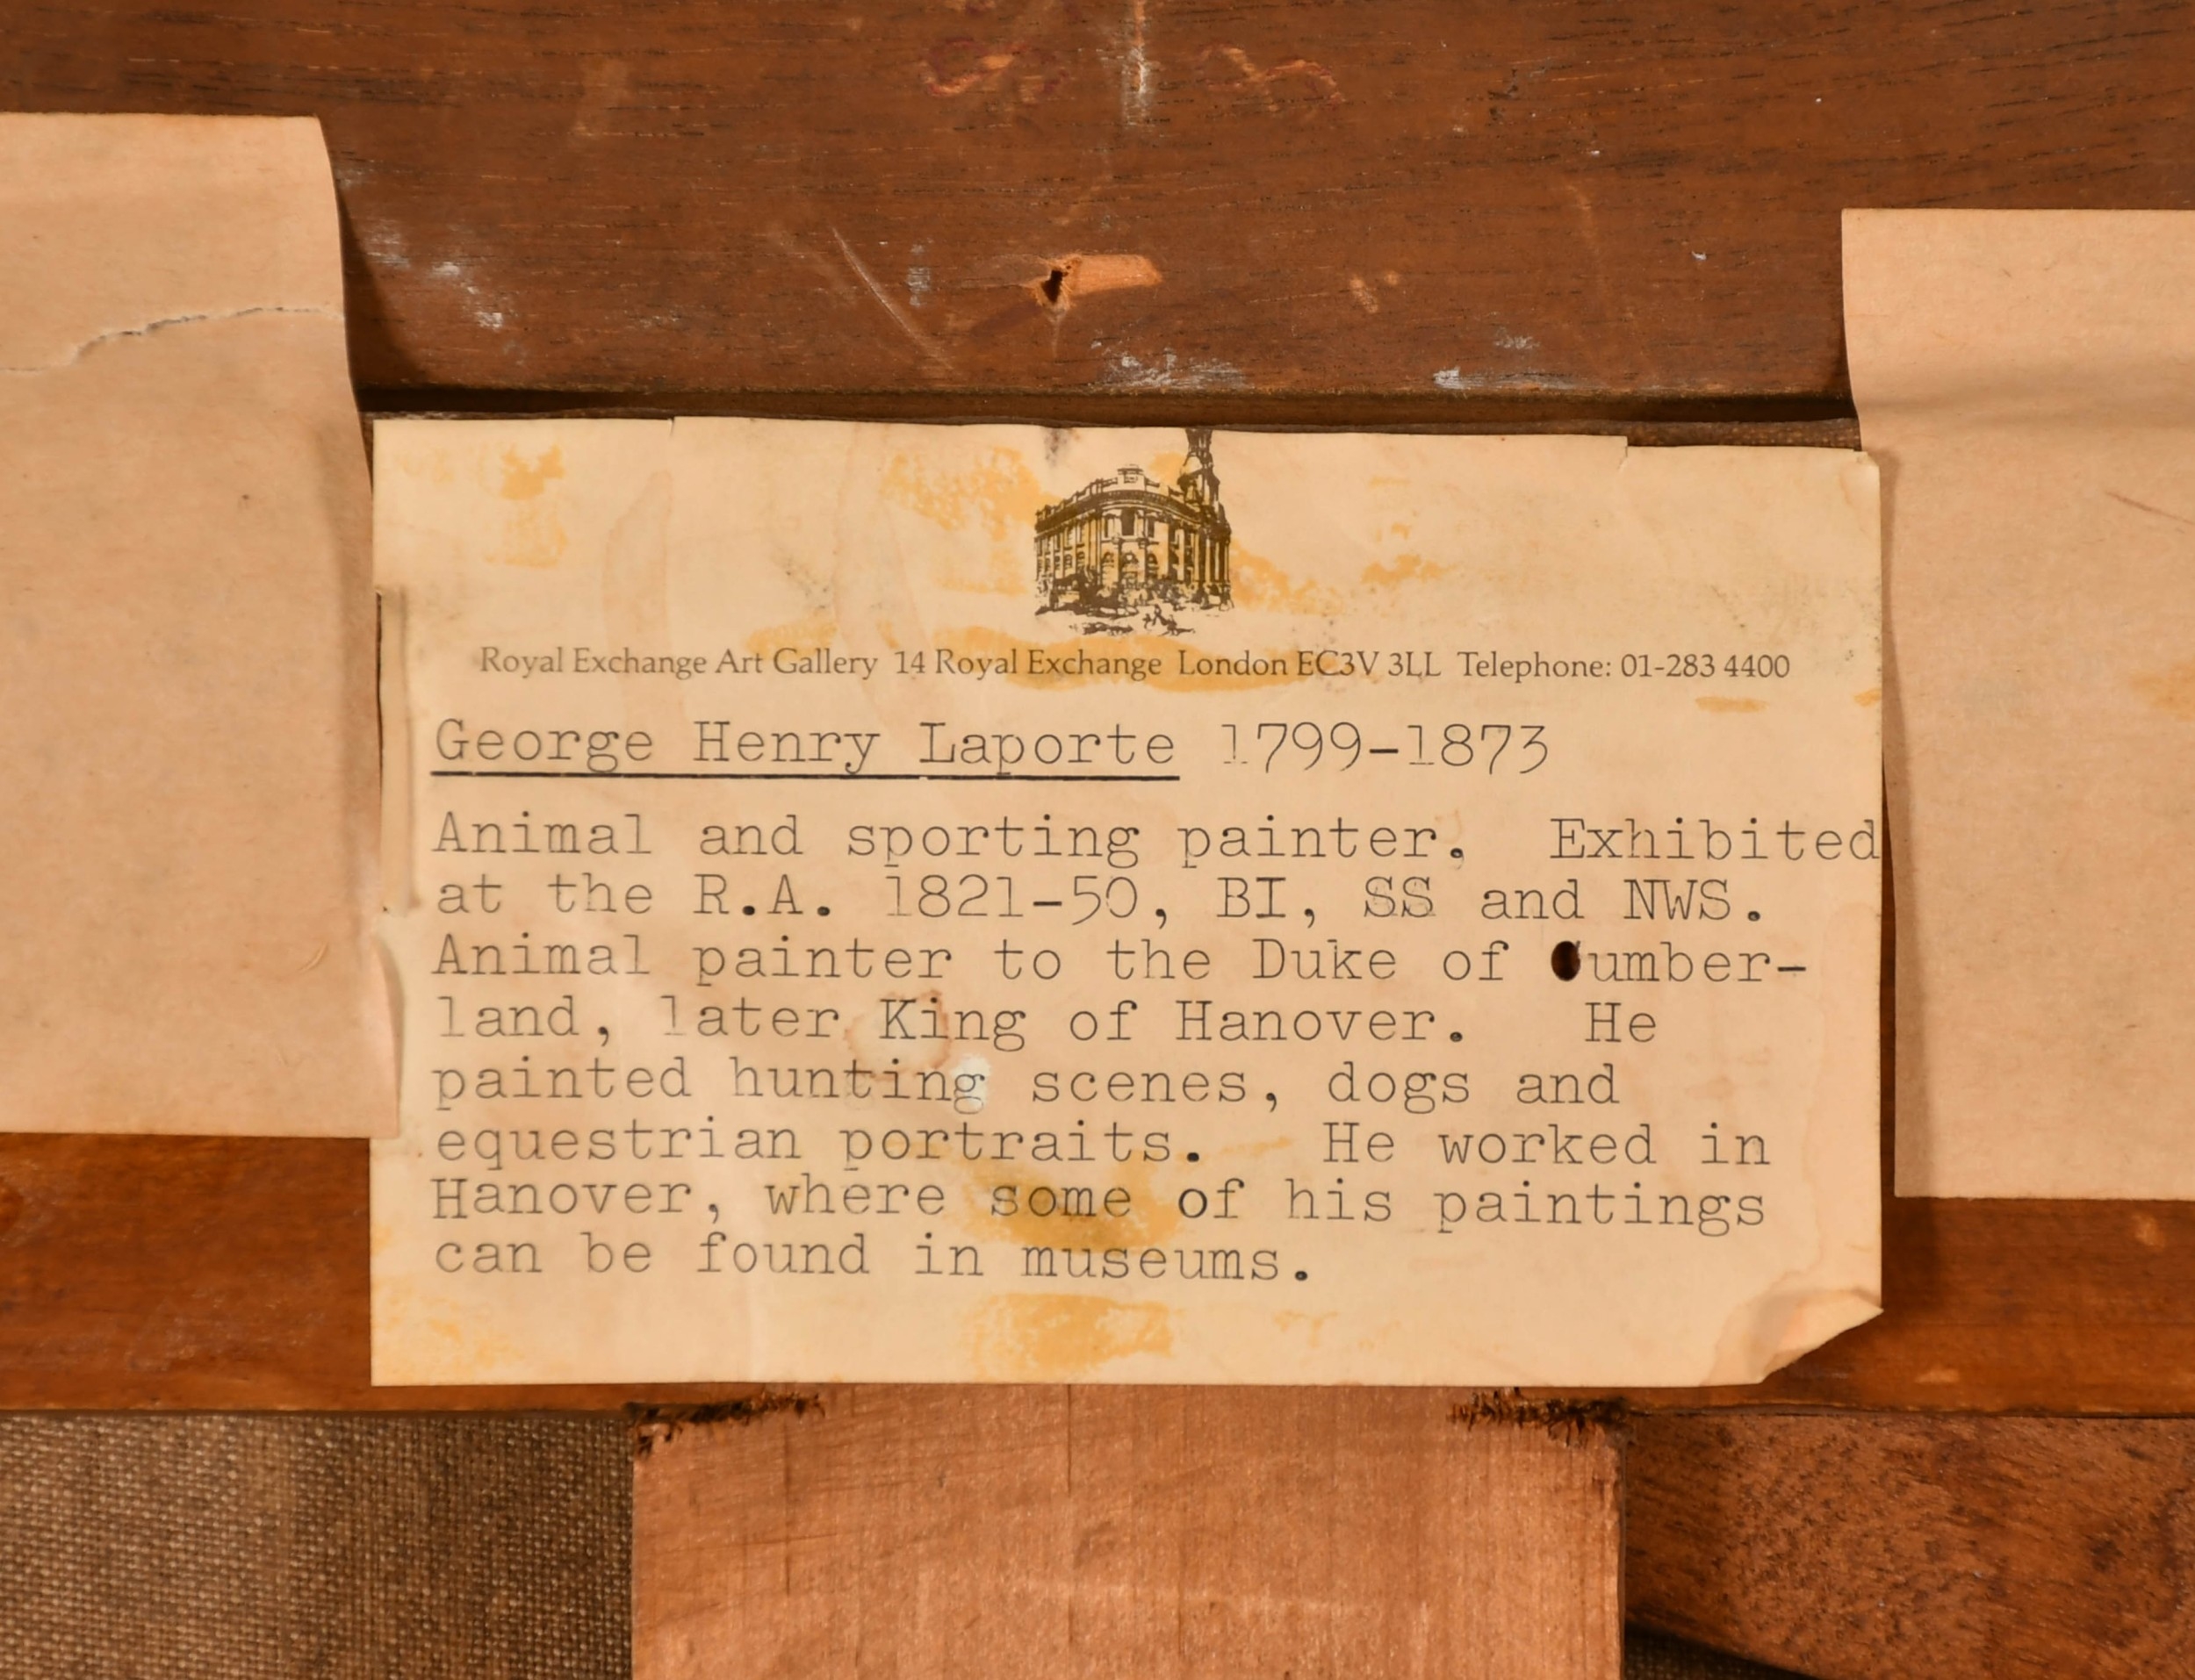 Royal Exchange Art Gallery 14 Royal Exchange London EC3V 3LL Telephone: 01-283 4400
George Henry Laporte 1799-1873
Animal and sporting painter. Exhibited
at the R.A. 1821-50, BI, SS and NWS.
Animal painter to the Duke of Cumber-
land, later King of Hanover. He
painted hunting scenes, dogs and
equestrian portraits. He worked in
Hanover, where some of his paintings
can be found in museums.